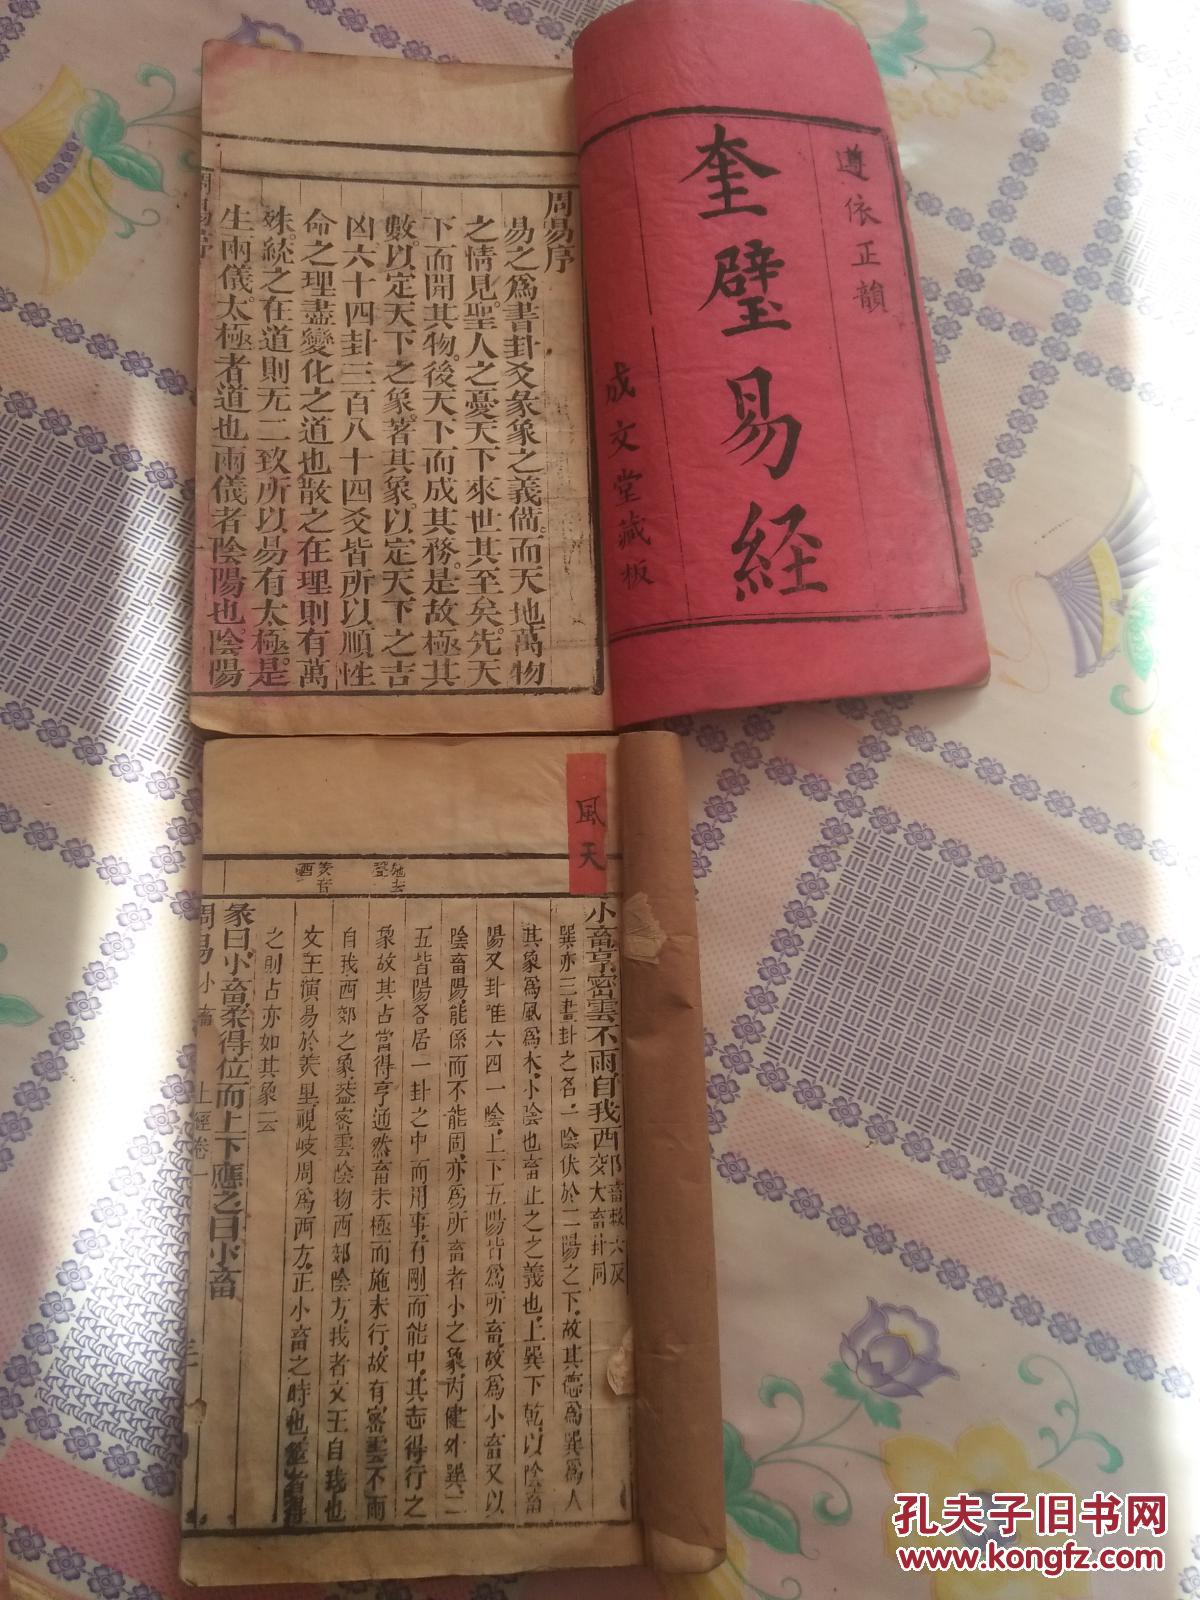 遵依正韻
奎璧易経
成文堂藏板
周易序
易之爲書卦爻彖象之義備而天地萬物
之情見聖人之憂天下來世其至矣先天
下而開其物後天下而成其務是故極其
數以定天下之象著其象以定天下之吉
凶六十四卦三百八十四爻皆所以順性
命之理盡變化之道也散之在理則有萬
殊統之在道則无二致所以易有太極是
生兩儀太極者道也兩儀者陰陽也陰陽
周易序
風天
小畜亨密雲不雨自我西郊
畜敕六反
大畜卦同
巽亦三畫卦之名一陰伏於二陽之下故其德爲巽爲入
其象爲風爲木小陰也畜止之之義也上巽下乾以陰畜
陽又卦唯六四一陰上下五陽皆爲所畜故爲小畜又以
陰畜陽能係而不能固亦爲所畜者小之象内健外巽二
五皆陽各居一卦之中而用事有剛而能中其志得行之
象故其占當得亨通然畜未極而施未行故有密雲不雨
自我西郊之象蓋密雲陰物西郊陰方我者文王自我也
文王演易於羑里視岐周爲西方正小畜之時也筮者得
之則占亦如其象云
彖曰小畜柔得位而上下應之曰小畜
周易 小畜 上經卷一
羑音
酉
孔夫子旧书网
www.kongfz.com